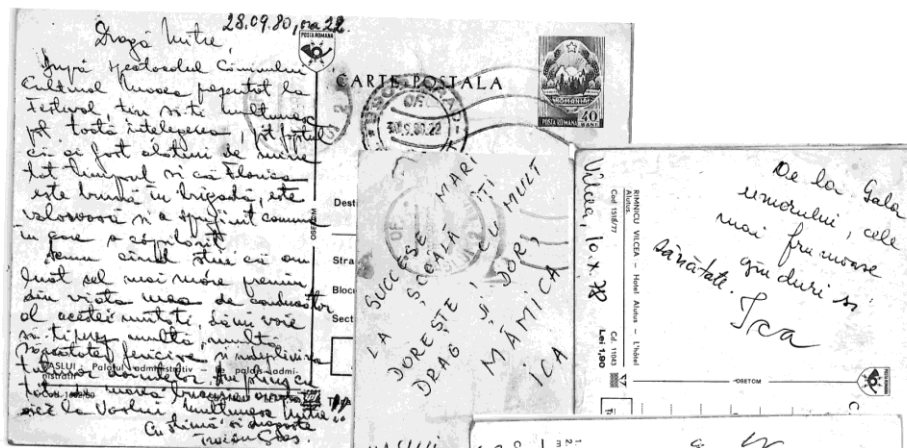 28.09.80, ora 22
Dragă Mitre,
După spectacolul Căminului
Cultural
la
Festival, țin să-ți mulțumesc
pt. toată înțelegerea, pt. faptul
că ai fost alături de mine
tot timpul și că Florica
este bună în brigadă, este
valoroasă și a sprijinit comuna
în care a copilărit.
Acum când știu că am
luat cel mai mare premiu
din viața mea de conducător
al acestei unități, dă-mi voie
să-ți urez multă, multă
sănătate, fericire și împlinirea
tuturor dorințelor
de marea bucurie
aici la Vaslui. Mulțumesc Mitre
Cu stimă și dragoste
VASLUI - Palatul administrativ - Le palais admi-
nistratif
POSTA ROMANA
CARTE POSTALA
ROMANIA
POSTA ROMANA 40 BANI
Desti
Stra
Blocu
Sect
OSETOM
LA SUCCESE MARI
LA ȘCOALĂ ÎȚI
DOREȘTE, CU MULT
DRAG ȘI DOR,
MĂMICA
ICA
VASLUI
Vîlcea, 10.X.78
RIMNICU VILCEA - Hotel Alutus - L'hôtel
Alutus.
Cod 1518/77
Cd. 11043
Lei 1,90
De la Gala
umorului, cele
mai frumoase
gînduri și
sănătate.
Ica
OSETOM